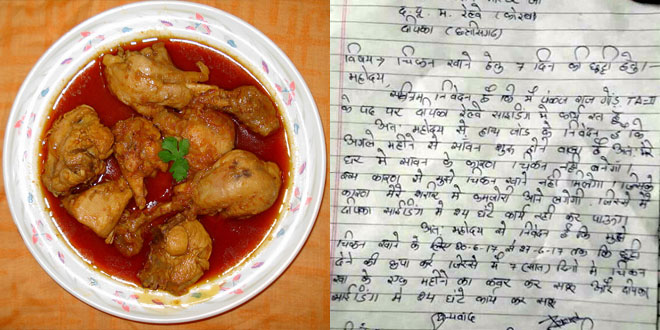 द. पू. म. रेल्वे (कोरबा)
दीपका (छत्तीसगढ़)
विषय → चिकन खाने हेतु 7 दिन की छुट्टी हेतु।
महोदय,
सविनय निवेदन है कि मैं पंकज राज गोंड TA-II
के पद पर दीपका रेल्वे साइडिंग में कार्यरत हूँ
अतः महोदय से हाथ जोड़ के निवेदन है कि
अगले महीने से सावन शुरू होने वाला है अतः मेरे
घर में सावन के कारण चिकन नहीं बनेगा।
इस कारण से मुझे चिकन खाने नहीं मिलेगा। जिसके
कारण मेरे शरीर में कमजोरी आने लगेगी। जिससे मैं
दीपका साईडिंग में 24 घंटे कार्य नहीं कर पाऊंगा।
अतः महोदय से निवेदन है कि मुझे
चिकन खाने के लिए 20-6-17 से 27-6-17 तक कि छुट्टी
देने की कृपा करें जिससे मैं 7 (सात) दिनों में चिकन
खा के एक महीने का कवर कर सकूं और दीपका
साईडिंग में 24 घंटे काम कर सकूं
धन्यवाद